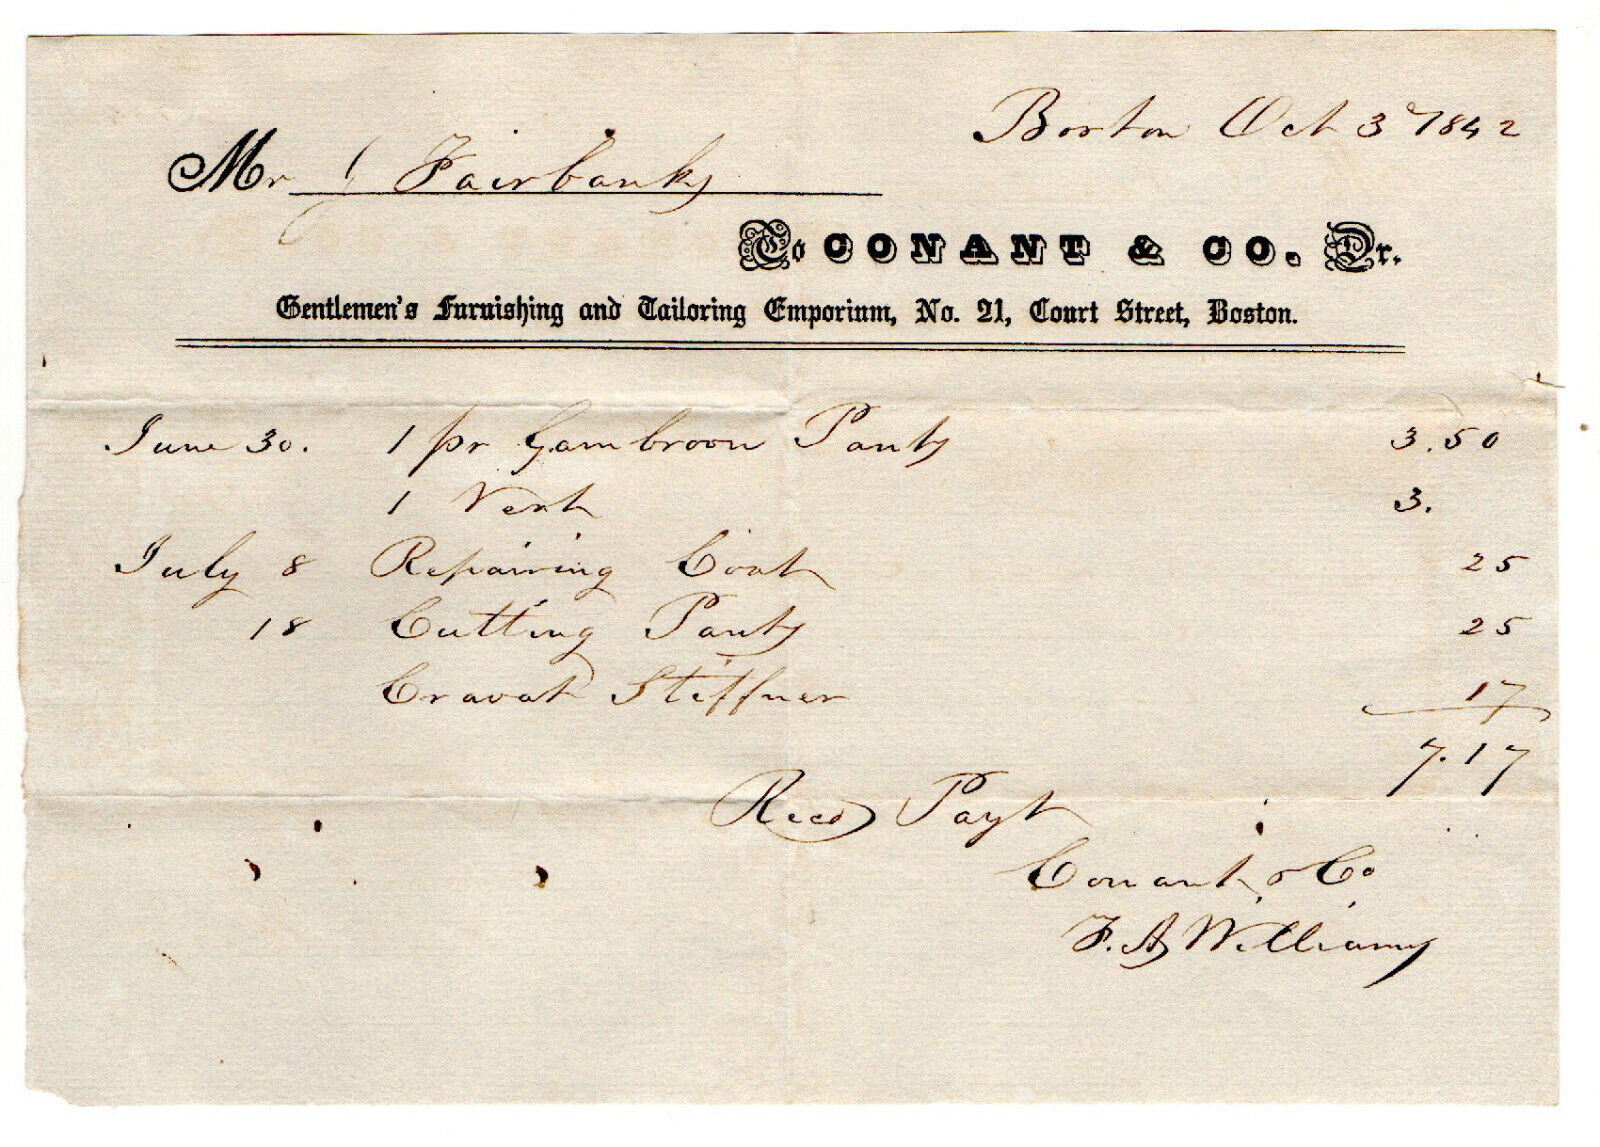 Boston Oct 3d 1842
Mr J Fairbanks
To CONANT & CO. Dr.
Gentlemen's Furnishing and Tailoring Emporium, No. 21, Court Street, Boston.
June 30. 1 pr Gambroon Pants 3.50
1 Vest 3.
July 8 Repairing Coat 25
18 Cutting Pants 25
Cravat Stiffner 17
7.17
Recd Payt
Conant & Co
F. A Williams